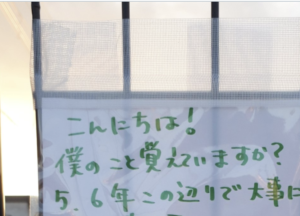 こんにちは!
僕のこと覚えていますか?
5、6年この辺りで大事に